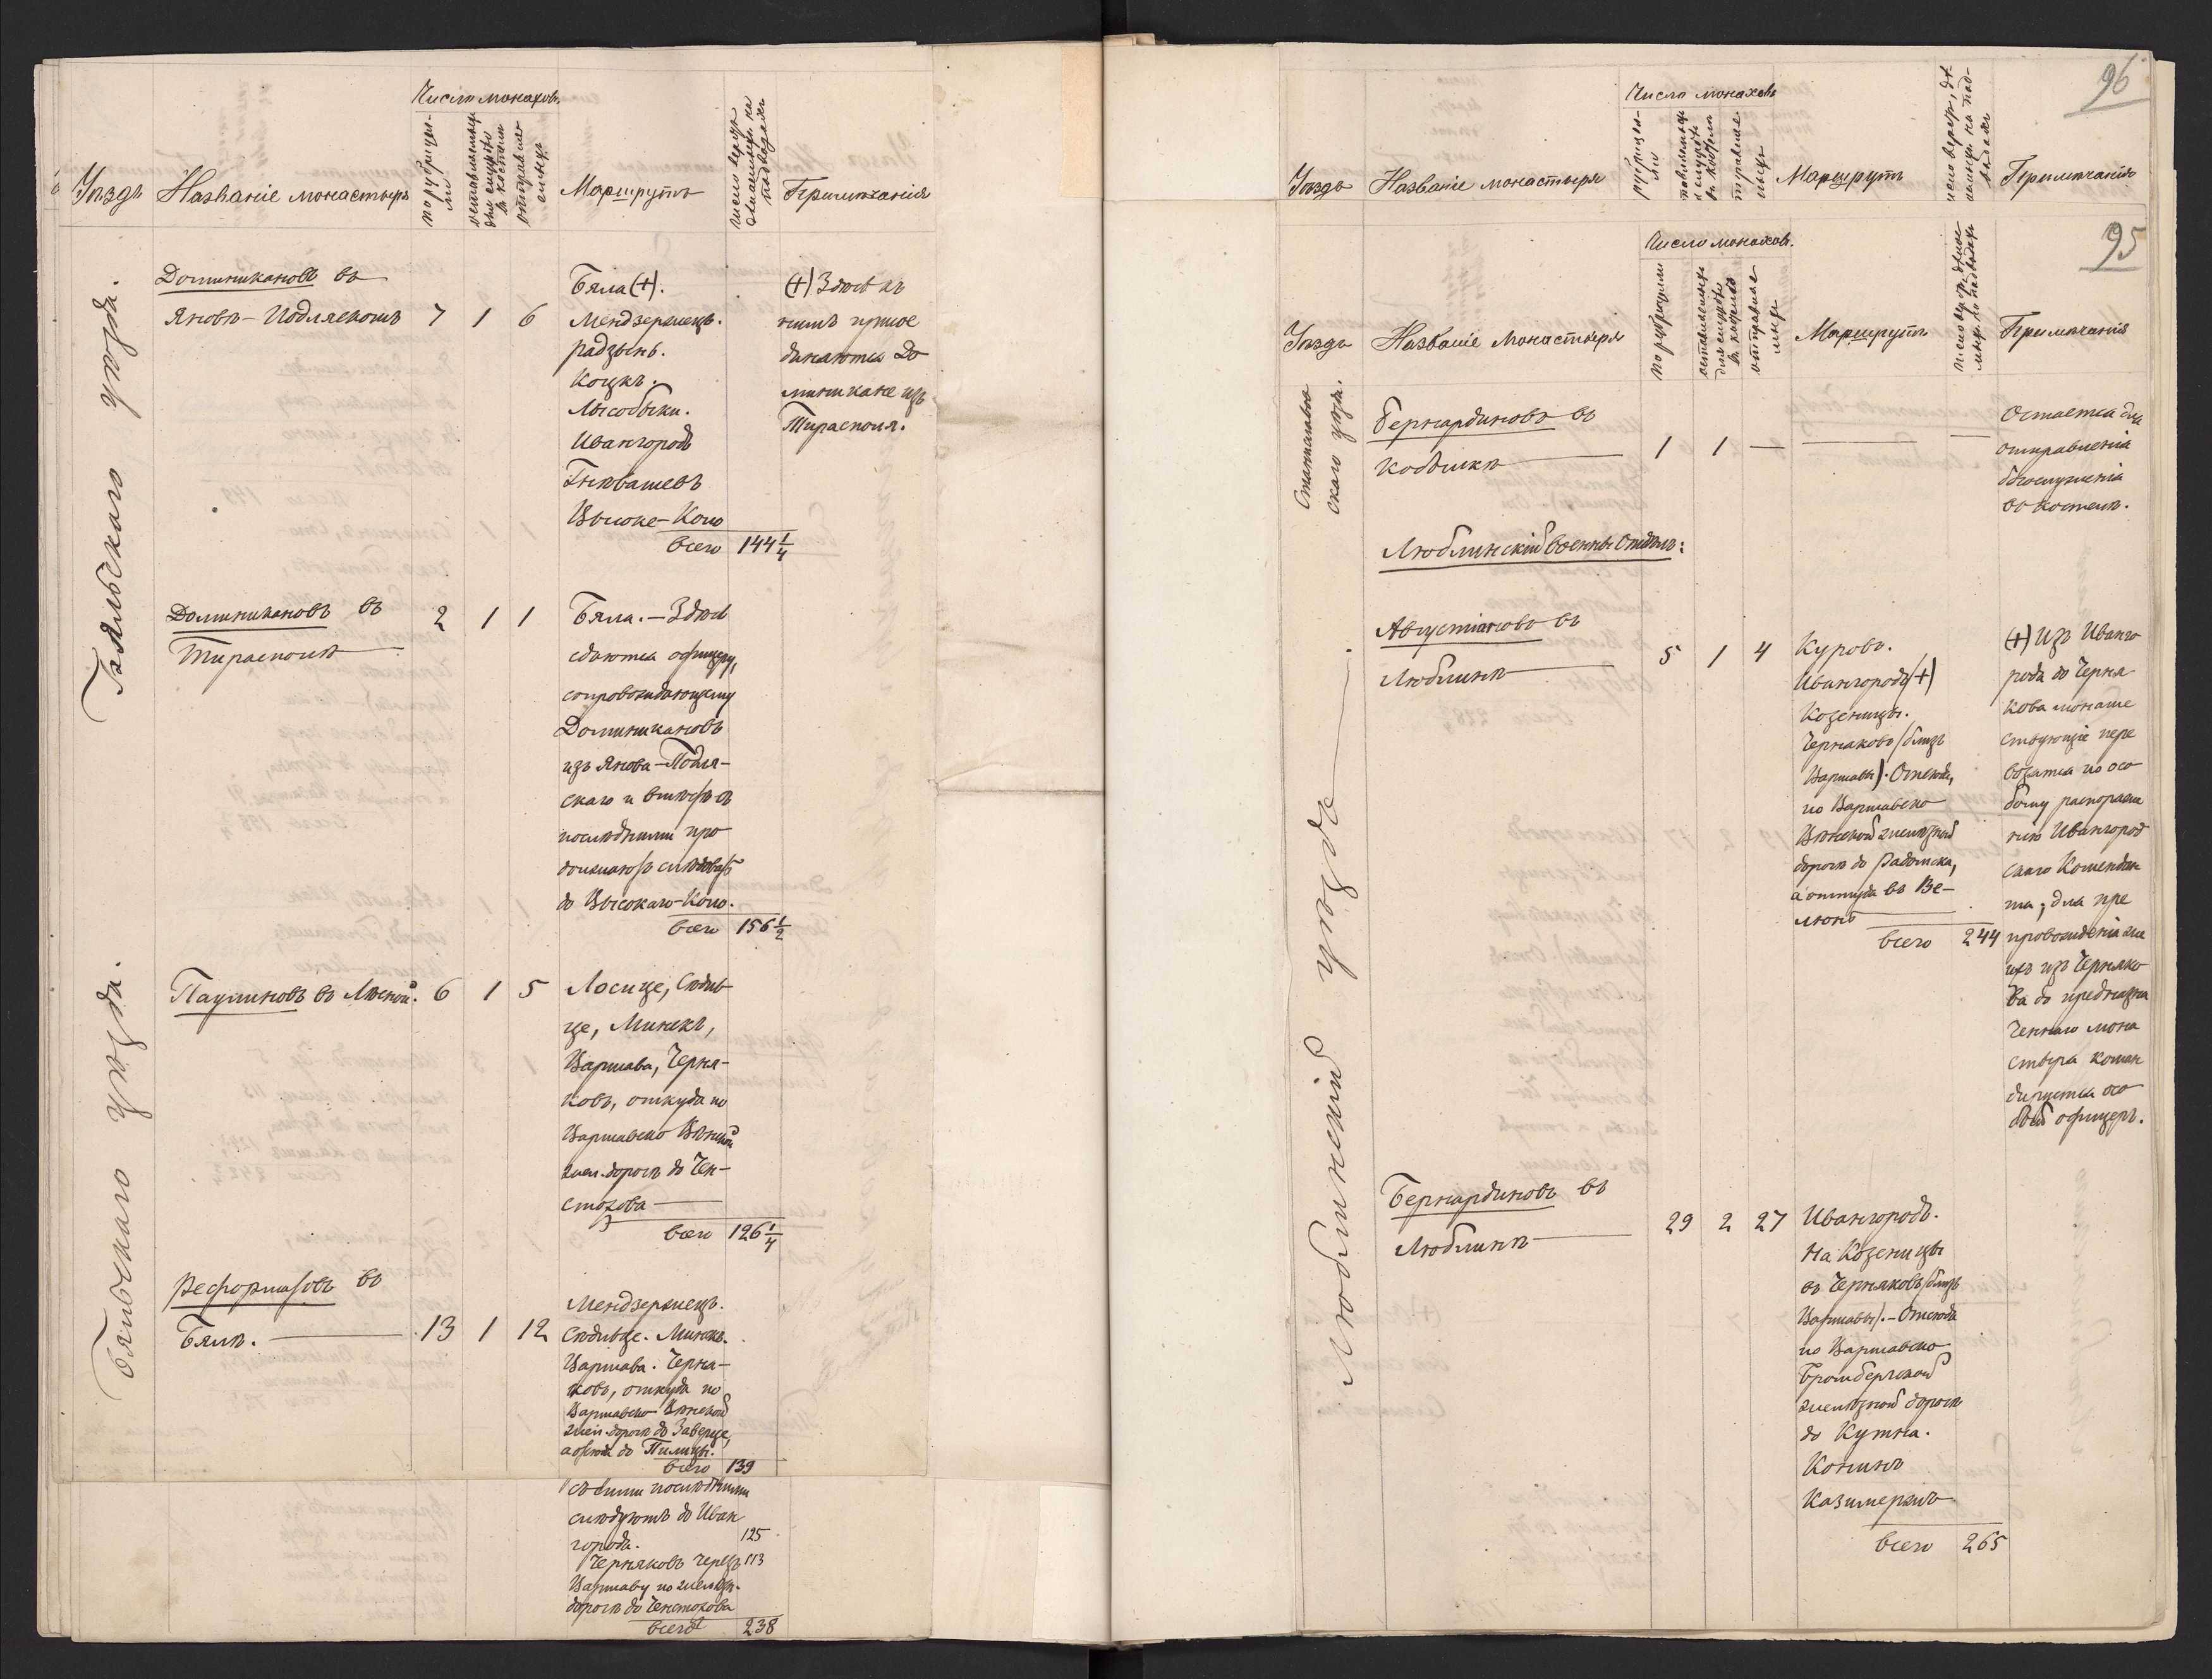 Число монаховъ.
Уѣздъ
Названіе монастыря
по рубрицел-
ли
оставляемыхъ
для службы
въ костелѣ
отправляе-
мыхъ
Маршрутъ
число верстъ
на
подводахъ
Примѣчанія
Бяльскаго уѣзда.
Доминикановъ въ
Яновѣ-Подляскомъ 7 1 6
Бяла (+).
Мендзержецъ.
Радзынь.
Коцкъ.
Лысобыки.
Ивангородъ
Гнѣвашевъ
Высоке-Коло
всего 144 1/4
(+) Здѣсь къ
нимъ присое
диняются До
миникане изъ
Тирасполя.
Доминикановъ въ
Тирасполѣ
2 1 1
Бяла. – Здѣсь
сдаются офицеру,
сопровождающему
Доминикановъ
изъ Янова-Подля-
скаго и вмѣстѣ съ
послѣдними про
должаютъ слѣдовать
до Высокаго-Коло.
всего 156 1/2
Бяльскаго уѣзда.
Паулиновъ въ Лѣсной. 6 1 5
Лосице, Сѣдль-
це, Минскъ,
Варшава, Черня-
ковъ, откуда по
Варшавско Вѣнской
жел. дорогѣ до Чен-
стохова
всего 126 1/4
Реформатовъ въ
Бялѣ. 13 1 12
Мендзержецъ.
Сѣдльце. Минскъ.
Варшава. Черня-
ковъ, откуда по
Варшавско Вѣнской
жел. дорогѣ до Заверце,
а отсюда до Пилицы.
всего 139
съ сими послѣдними
слѣдуютъ до Иван
города. 125
Черняковъ черезъ 113
Варшаву по желѣзн.
дорогѣ до Ченстохова
всего 238
96
Число монаховъ
Уѣздъ
Названіе монастыря
Маршрутъ
Примѣчанія
95
Число монаховъ.
Уѣздъ
Названіе монастыря
по рубрицелли
оставляемыхъ
для службы
въ костелѣ
отправляе
мыхъ
Маршрутъ
Примѣчанія
Станиславов
скаго уѣзда.
Бернардиновъ въ
Кобылкѣ
1 1 —
Остается для
отправленія
богослуженія
въ костелѣ.
Люблинскій военный Отдѣлъ:
Люблинскій уѣздъ
Августіановъ въ
Люблинѣ
5 1 4
Куровъ.
Ивангородъ (+)
Козеницы.
Черняково (близъ
Варшавы). Отсюда,
по Варшавско
Вѣнской желѣзной
дорогѣ до Радомска,
а оттуда въ Ве-
люнь
всего 244
(+) Изъ Иванго
рода до Черня
кова монаше
ствующіе пере
возятся по осо
бому распоряже
нію Ивангород
скаго Комендан
та; для пре
провожденія же
ихъ изъ Черняко
ва до предназна
ченнаго мона
стыря коман
дируется осо
бый офицеръ.
Бернардиновъ въ
Люблинѣ
29 2 27
Ивангородъ.
на Козеницы
въ Черняковъ (близъ
Варшавы). – Отсюда
по Варшавско
Бромбергской
желѣзной дорогѣ
до Кутна.
Конинъ
Казимержъ
всего 265